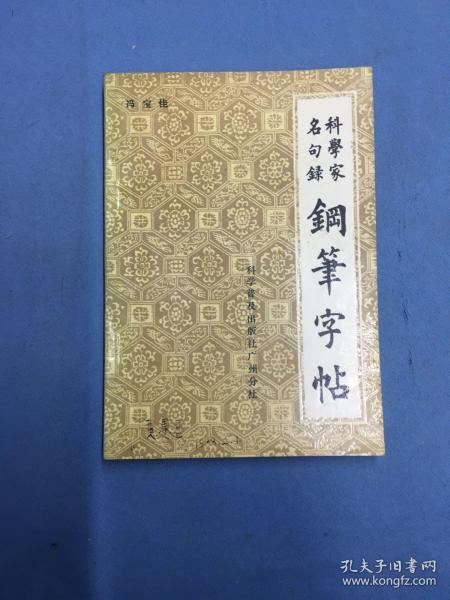 冯宝佳
科學家
名句録
鋼筆字帖
科学普及出版社广州分社
孔夫子旧书网
www.kongfz.com